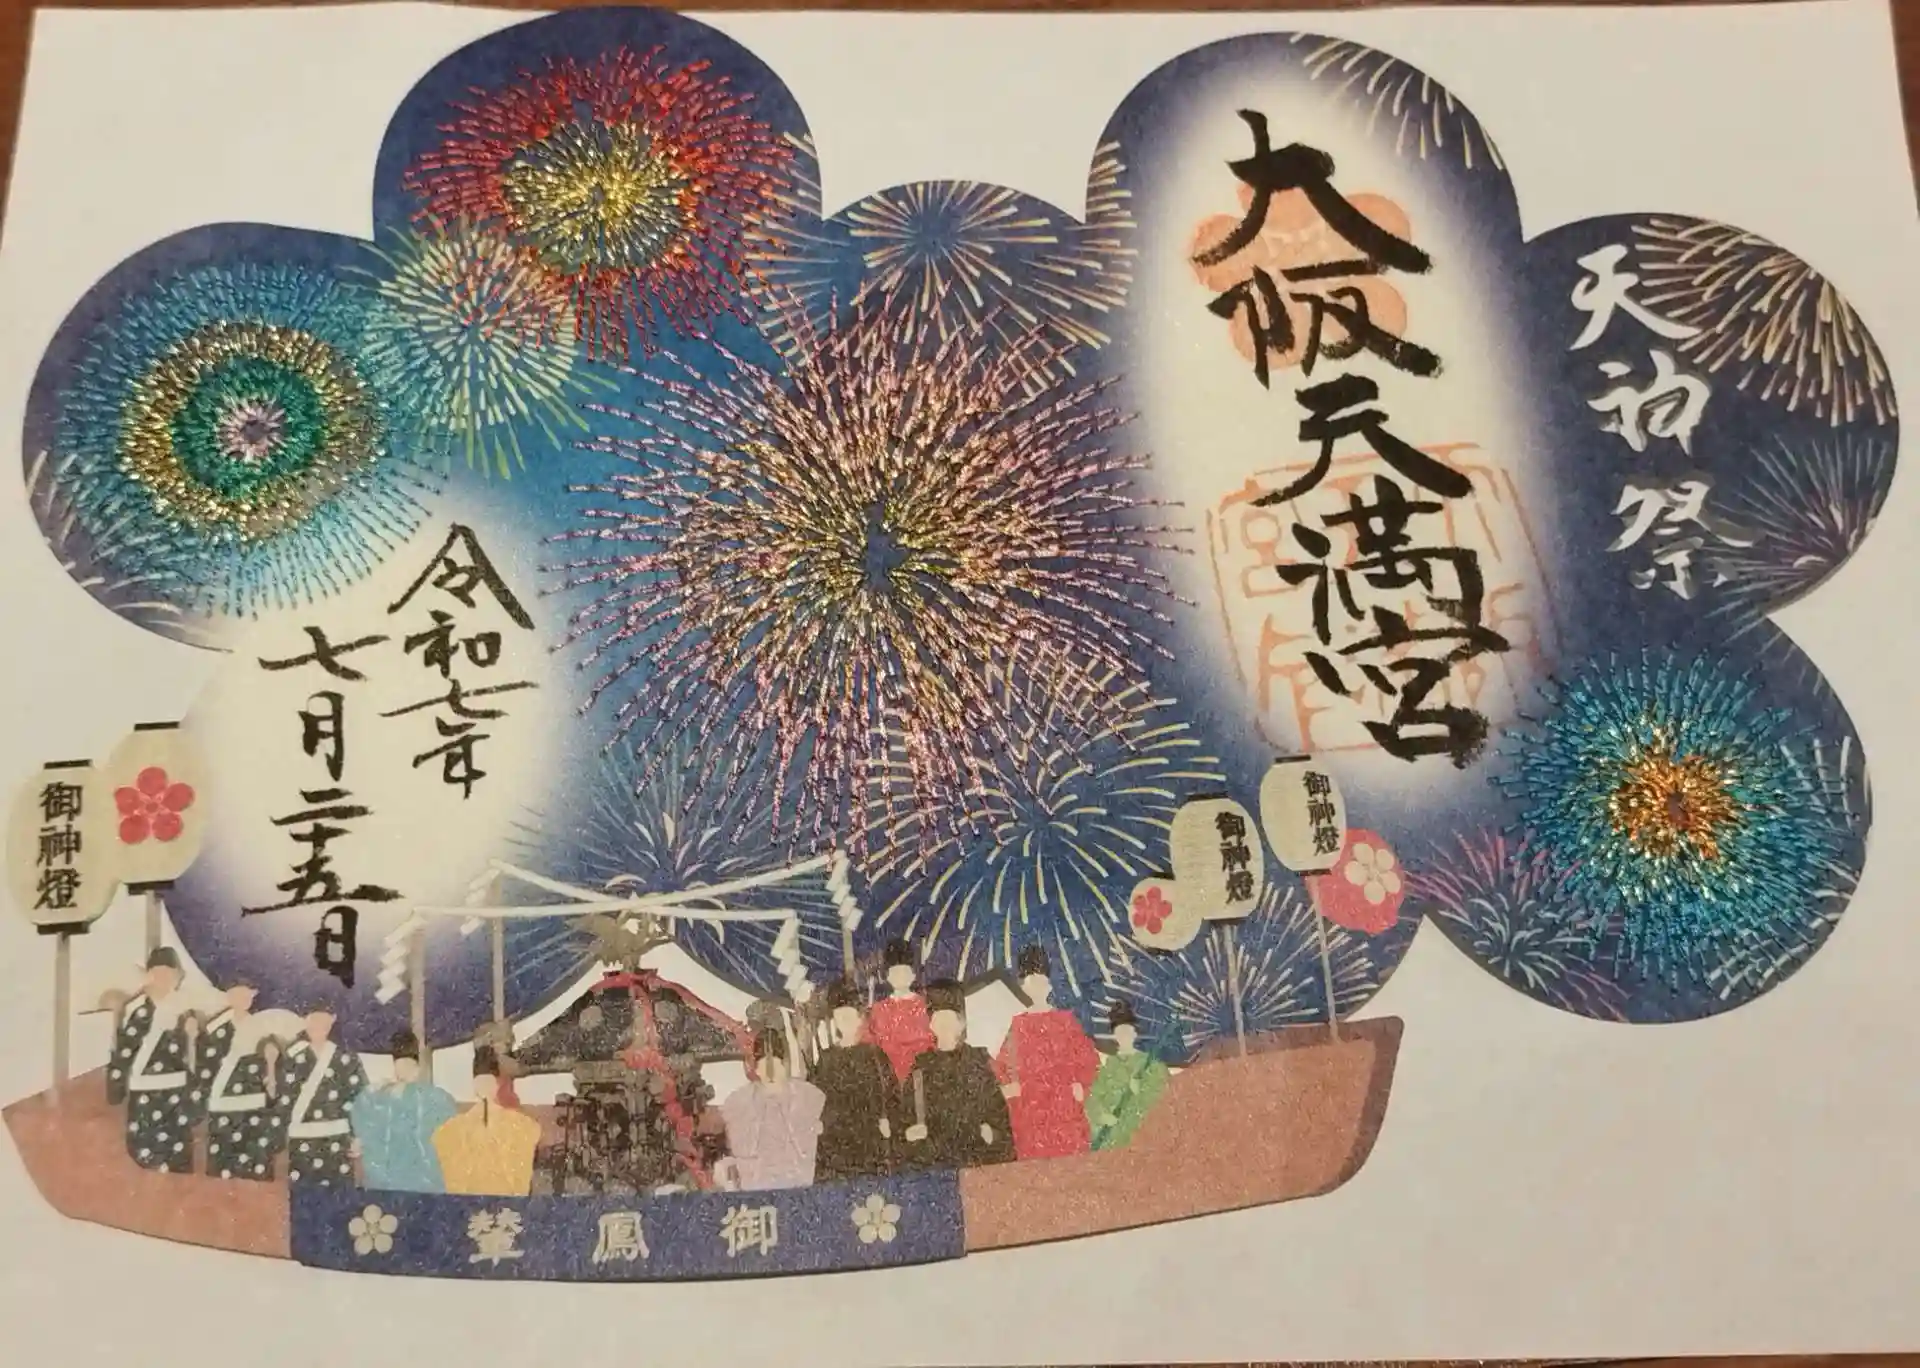 天神祭
大阪天満宮
令和七年
七月二十五日
御神燈
御神燈
御神燈
御鳳輦